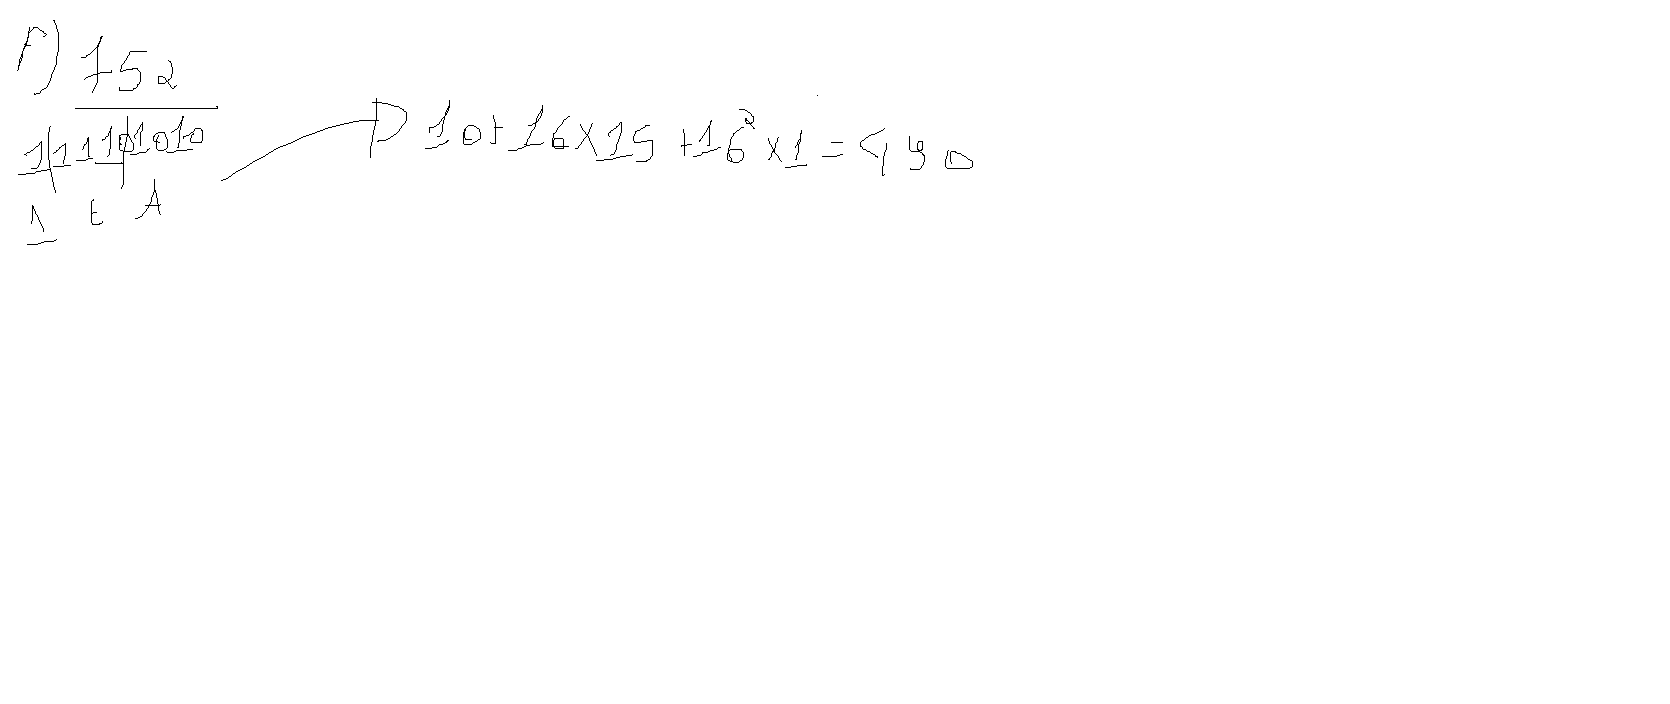 F) 752
1|1110|1010
1 E A
D 10+16x15+16²x1=490